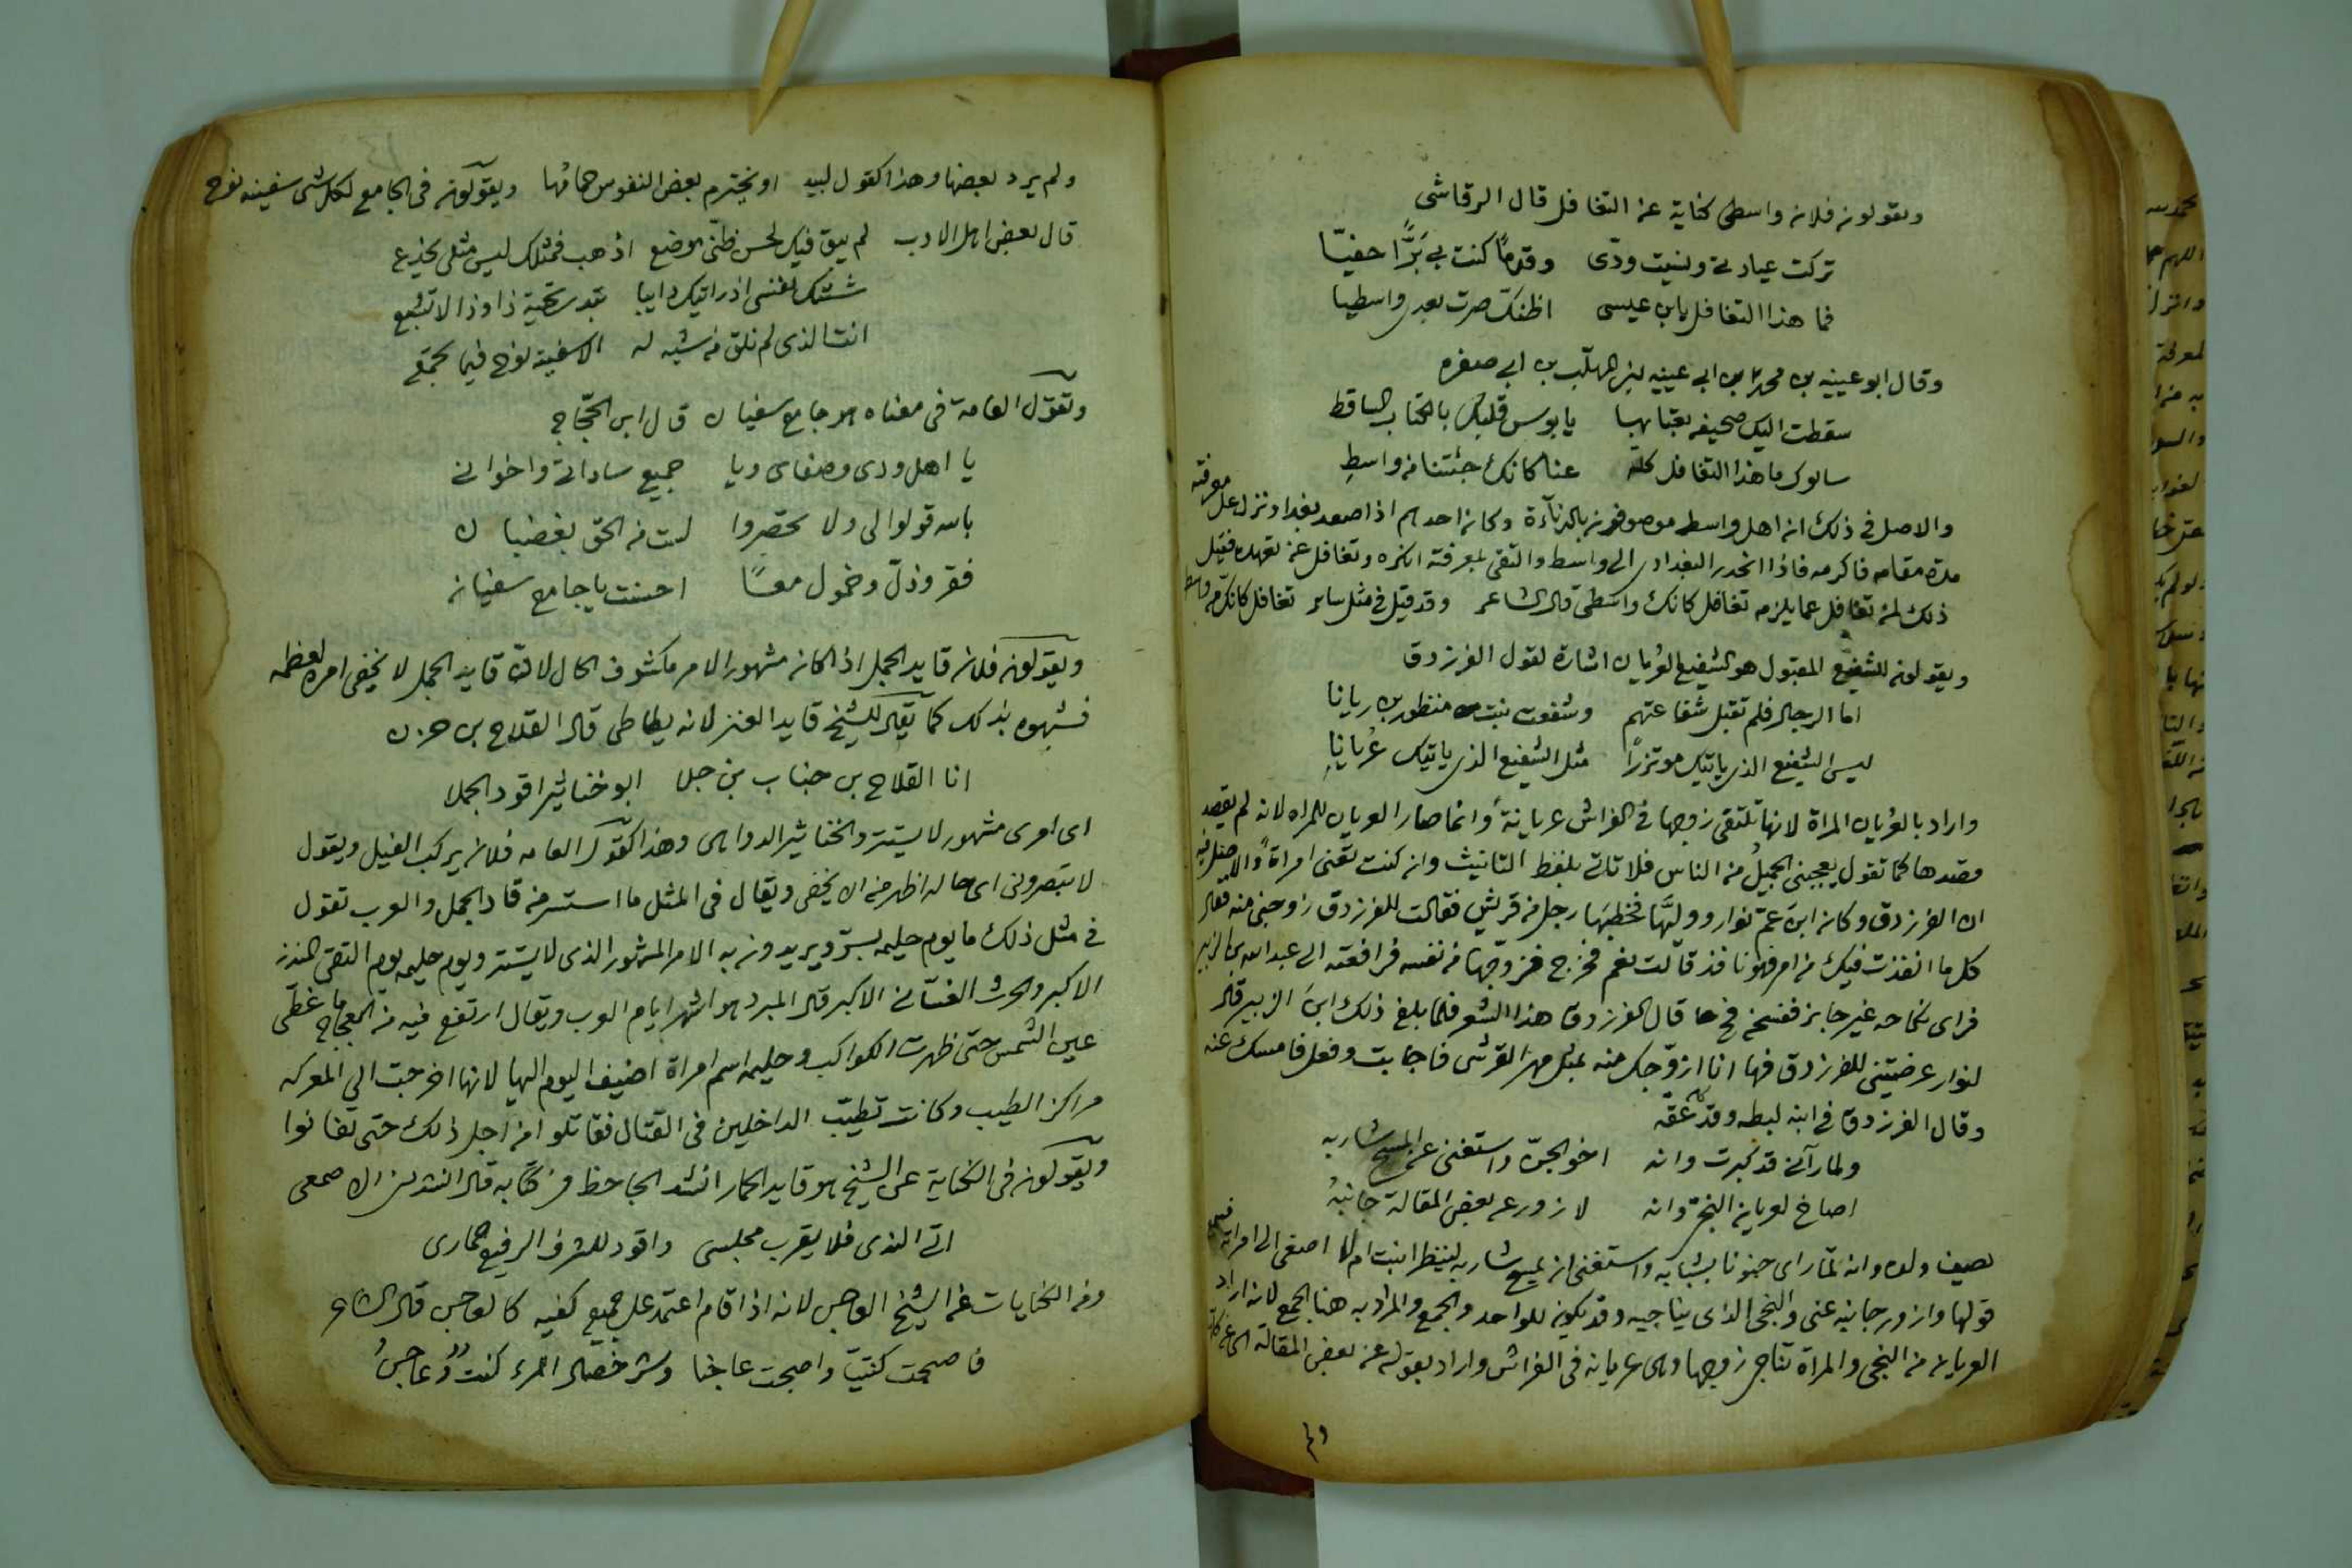 ويقولون فلان واسطى كناية عن التغافل قال الرقاشى
تركت عيادتى ونسيت ودّى وقدمًا كنت بى بَرًّا حفيّا
فما هذا التغافل يابن عيسى اظنك صرت بعدى واسطيا
وقال ابو عيينه بن محمد بن ابى عيينه بن المهلب بن ابى صفره
سقطت اليك صحيفه بعتابها يا بوس قلبك بالكتاب الساقط
سالوك ما هذا التغافل كله عنا كانك جئتنا من واسطِ
والاصل فى ذلك ان اهل واسط موصوفون بالدنآءة وكان احدهم اذا اصعد بغداد نزل على معرفته
مدة مقامه فاكرمه فاذا انحدر البغدادى الى واسط والتقى بمعرفته انكره وتغافل عن تعهده فقيل
ذلك لمن تغافل عما يلزمه تغافل كانك واسطى قال الشاعر وقد قيل فى مثل ساير تغافل كانك من واسط
ويقولون للشفيع المقبول هو الشفيع العُريان اشارة لقول الفرزدق
اما الرجال فلم تقبل شفاعتهم وشفعت بنت منظور بن ريانا
ليس الشفيع الذى ياتيك موتزرًا مثل الشفيع الذى ياتيك عُريانا
واراد بالعُريان المراة لانها تلتقى زوجها فى الفراش عريانة وانما صار العريان للمراه لانه لم يقصد
قصدها كما تقول يعجبنى الجميلُ من الناس فلا تاتى بلفظ التانيث وان كنت تعنى امراةً والاصل فيه
ان الفرزدق وكان ابنَ عمّ نوار ووليّها فخطبها رجل من قريش فقالت للفرزدق زوجنى منه فقال
كل ما انفذت فيك من امر فهو نافذ قالت نعم فخرج فزوّجها من نفسه فرافعته الى عبد الله بن الزبير
فراى نكاحه غير جايز ففسخه فح قال الفرزدق هذا الشعر فلما بلغ ذلك ابنَ الزبير قال
لنوار عرضتينى للفرزدق فها انا ازوّجك منه بمثل مهر القرشى فاجابت وفعل فامسك عنه
وقال الفرزدق فى ابنه لبطه وقد عقّه
ولما رآنى قد كبرت وانه اخو الجنّ واستغنى عن المسح شاربه
اصاخ لعريان النجىّ وانه لازور عن بعض المقالة جانبُه
يصف ولده وانه لمّا راى جنونا بشبابه واستغنى ان يمسح شاربه لينظر انبت ام لا اصغى الى امراته فسمع
قولها وازور جانبه عنى والنجى الذى يناجيه وقد يكون للواحد والجمع والمراد به هنا الجمع لانه اراد
العريان من النجى والمراة تناجى زوجها وهى عريانه فى الفراش واراد بقوله عن بعض المقالة اى عن كلها
ولم
ولم يرد بعضها وهذا كقول لبيد او يخترم بعض النفوس حمامُها ويقولون فى الجامع لكل شى سفينه نوح
قال بعض اهل الادب لم يبق فيك لحسن ظنى موضع اذهب فمثلك ليس مثلى يخدع
شتتك نفسى اذ راتيك دايبا بقد ذا وذا لا تشبع
انت الذى لم نلق من شبه له الا سفينة نوح فيما تجمع
وتقول العامة فى معناه هو جامع سفيان قال ابن الحجّاج
يا اهل ودى وصفاى ويا جميع ساداتى واخوانى
بالله قولوا لى ولا تحصروا لست من الحق بغضبان
فقر وذلّ وخمول معًا احسنت يا جامع سفيان
ويقولون فلان قايد الجمل اذا كان مشهور الامر مكشوف الحال لان قايد الجمل لا يخفى امره لعظمه
فشبهوه بذلك كما يقال للشيخ قايد العنز لانه يطاطى قال القلاخ بن حزن
انا القلاخ بن جناب بن جلا ابو خناثير اقود الجملا
اى امرى مشهور لا يستتر والخناثير الدواهى وهذا كقول العامه فلان يركب الفيل ويقول
لا تبصرونى اى حاله اظهر من ان يخفى ويقال فى المثل ما استسر من قاد الجمل والعرب تقول
فى مثل ذلك ما يوم حليمه بسرّ ويريدون به الامر المشهور الذى لا يستتر ويوم حليمه يوم التقى المنذر
الاكبر والحرث الغسّانى الاكبر قال المبرد هو اشهر ايام العرب ويقال ارتفع فيه من العجاج ما غطى
عين الشمس حتى ظهرت الكواكب وحليمه اسم امراة اضيف اليوم اليها لانها اخرجت الى المعركه
مراكن الطيب وكانت تطيّب الداخلين فى القتال فقاتلوا من اجل ذلك حتى تفانوا
ويقولون فى الكناية عن الشيخ هو قايد الحمار انشد الجاحظ فى كتابه قال انشدنى الاصمعى
اتى الندى فلا يقرب مجلسى واقود للشرف الرفيع حمارى
ومن الكنايات عن الشيخ العاجن لانه اذا قام اعتمد على جميع كفيه كالعاجن قال الشاعر
فاصبحت كنتيّا واصبحت عاجنا وشر خصال المرء كنتُ وعاجنُ